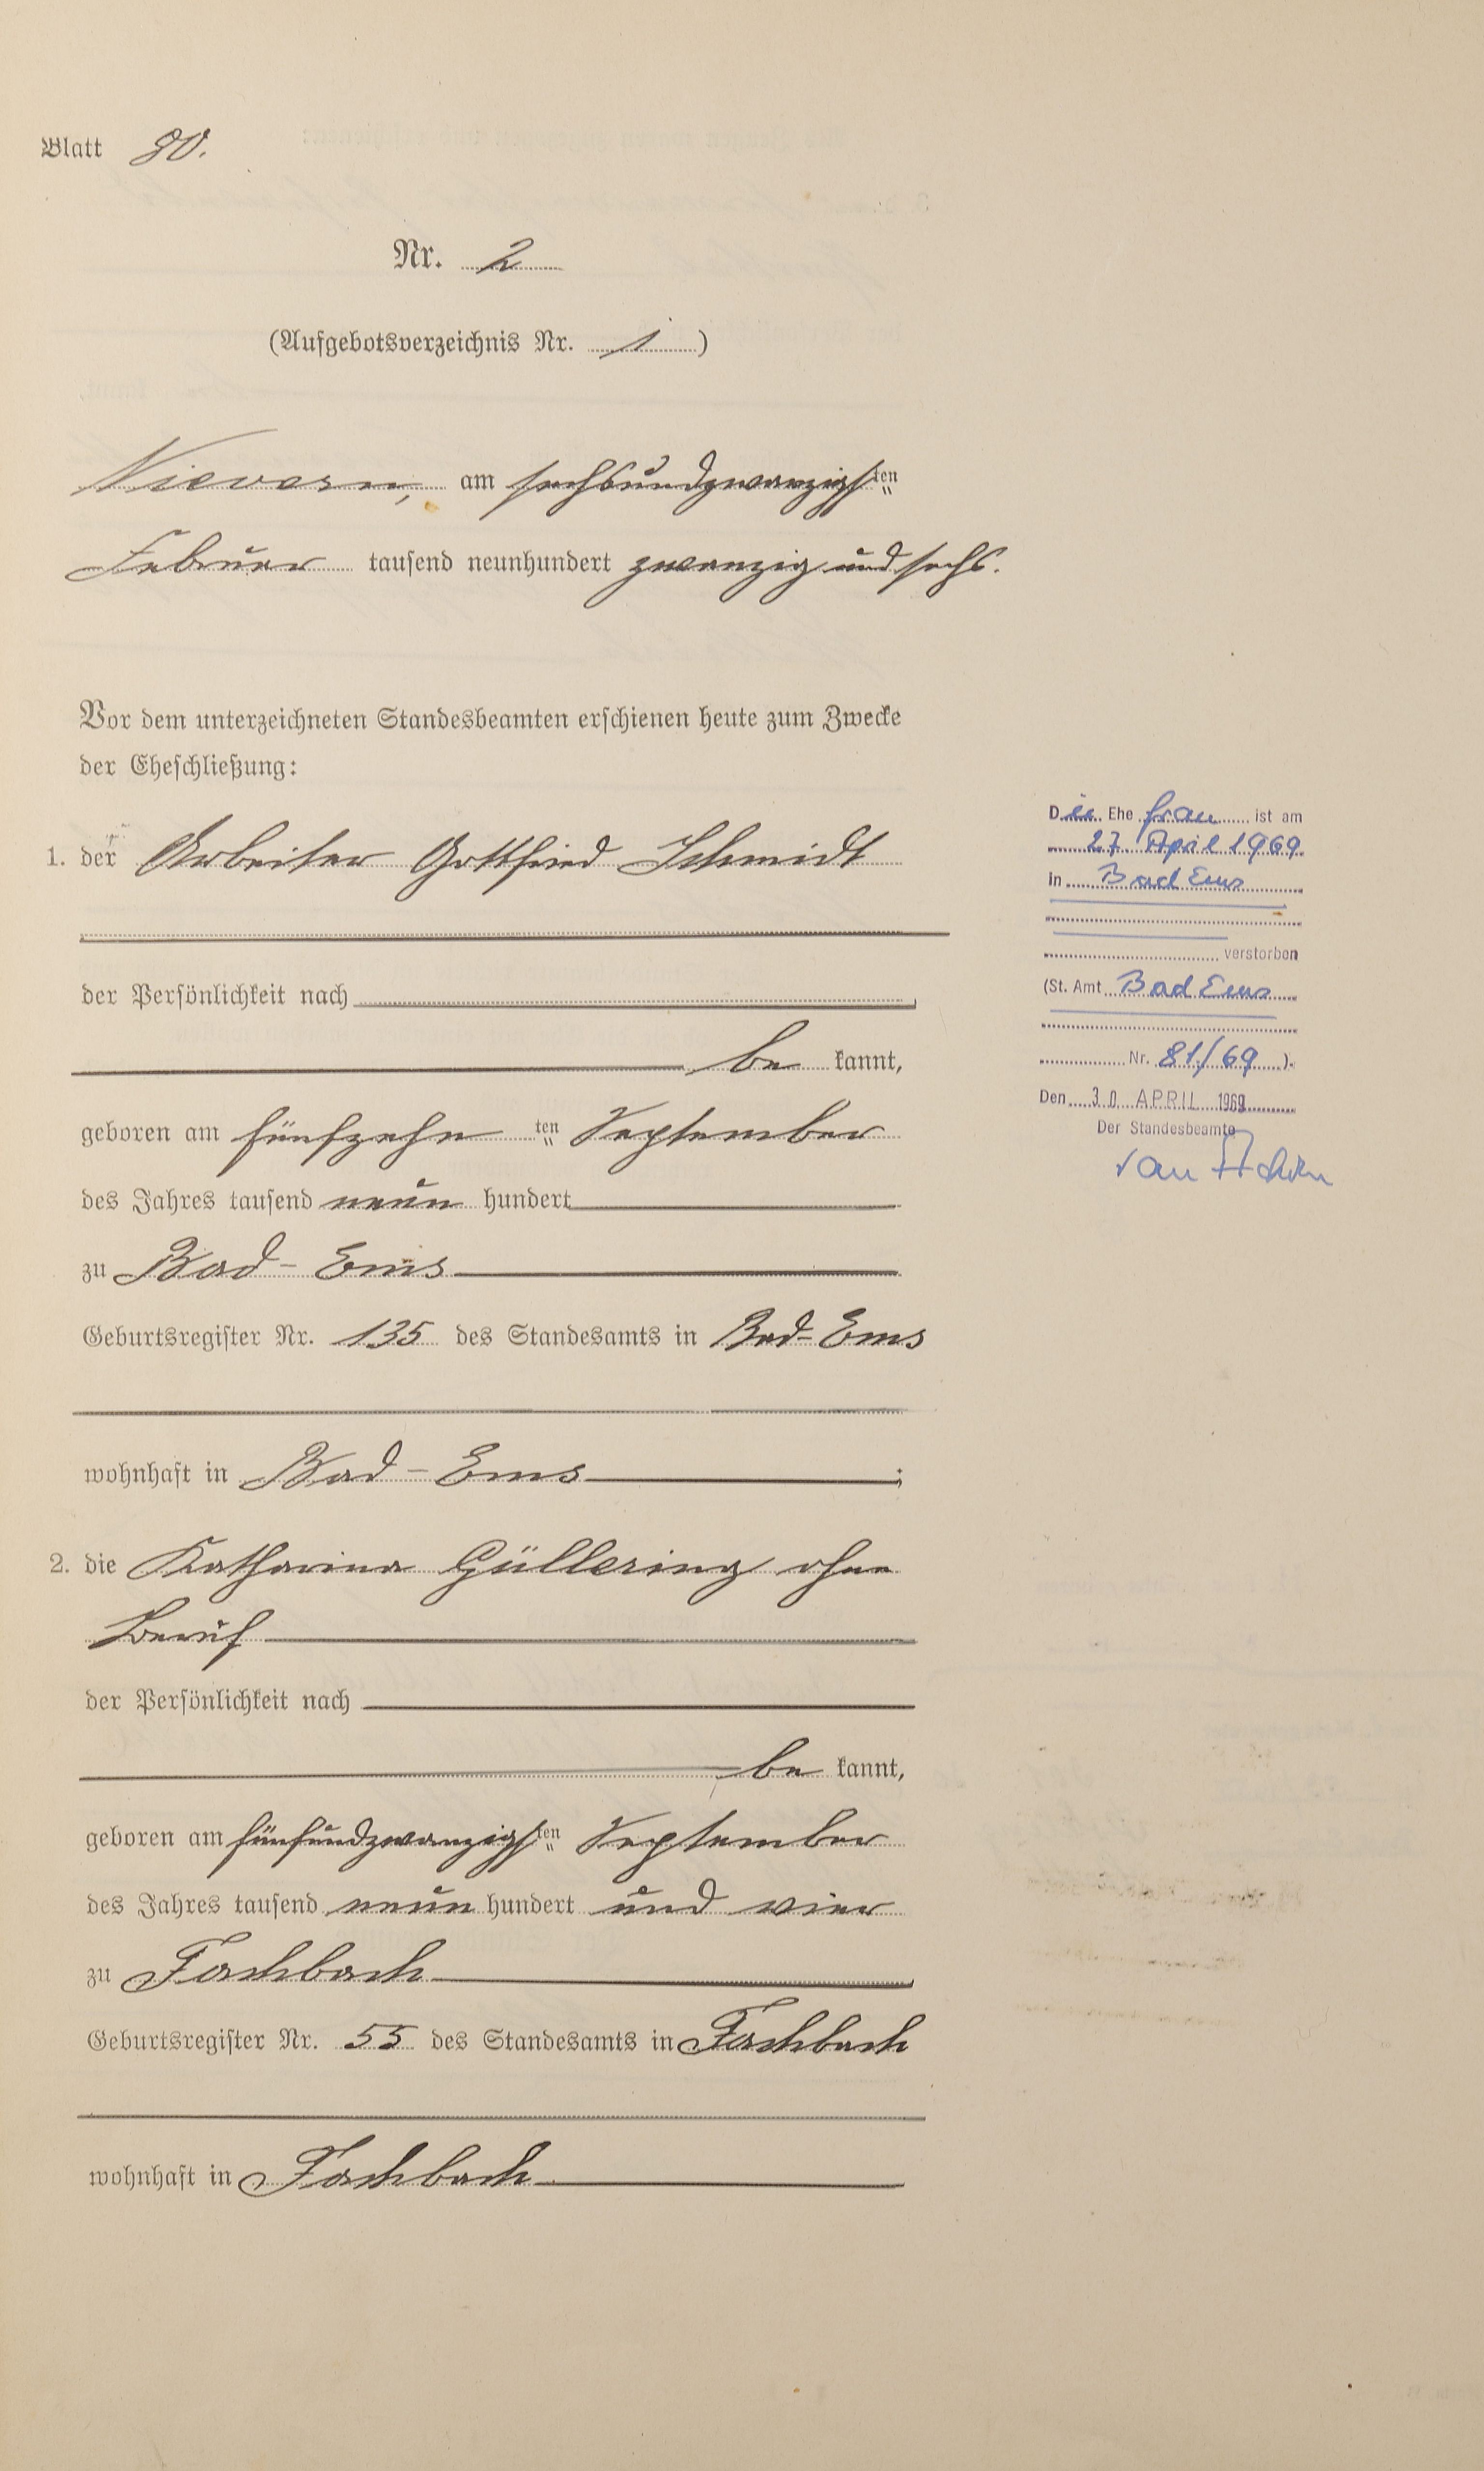 Blatt 80.
Nr. 2
(Aufgebotsverzeichnis Nr. 1)
Nievern, am sechsundzwanzigsten
Februar tausend neunhundert zwanzig und sechs.
Vor dem unterzeichneten Standesbeamten erschienen heute zum Zwecke
der Eheschließung:
1. der Arbeiter Gottfried Schmidt
der Persönlichkeit nach
be kannt,
geboren am fünfzehn ten September
des Jahres tausend neun hundert
zu Bad-Ems
Geburtsregister Nr. 135 des Standesamts in Bad-Ems
wohnhaft in Bad-Ems ;
2. die Katharina Güllering ohne
Beruf
der Persönlichkeit nach
be kannt,
geboren am fünfundzwanzigsten September
des Jahres tausend neun hundert und vier
zu Fachbach
Geburtsregister Nr. 55 des Standesamts in Fachbach
wohnhaft in Fachbach
Die Ehe frau ist am
27. April 1969
in Bad Ems
verstorben
(St. Amt Bad Ems
Nr. 81/69 ).
Den 30. APRIL 1969
Der Standesbeamte